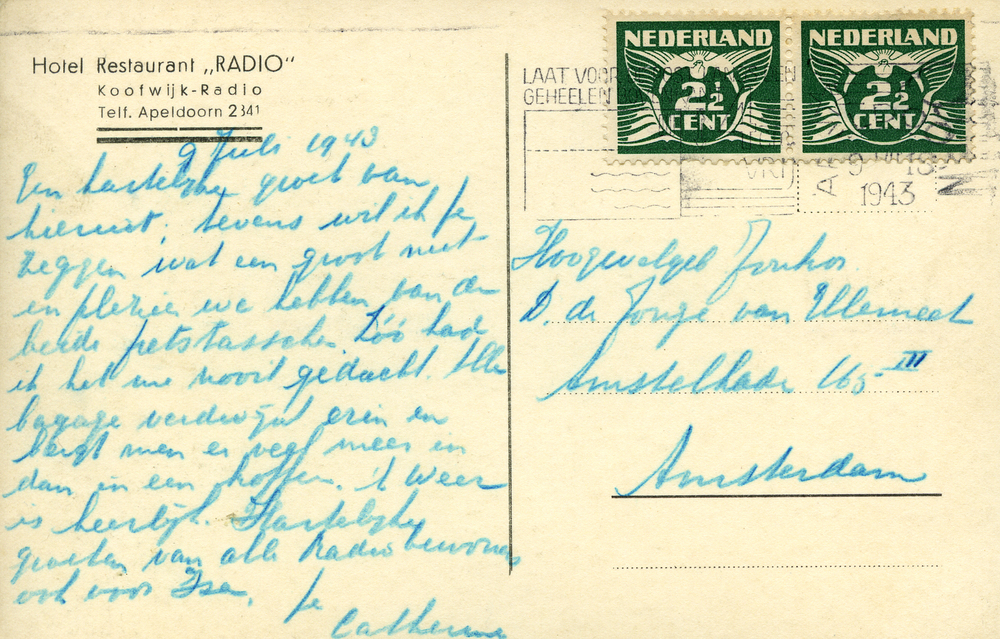 Hotel Restaurant „RADIO"
Kootwijk-Radio
Telf. Apeldoorn 2341
9 Juli 1943
Een hartelijke groet van
hieruit, tevens wil ik je
zeggen wat een groot nut
en plezier we hebben van de
beide fietstasschen. Zóó had
ik het me nooit gedacht. Alle
bagage verdwijnt erin en
bergt men er veel meer in
dan in een koffer. 't Weer
is heerlijk. Hartelijke
groeten van alle Radiobewoners
ook voor Ise,
je
Catherine
NEDERLAND
2½
CENT
NEDERLAND
2½
CENT
LAAT VOOR
GEHEELEN
9
1943
Hoogwelgeb Jonkvr.
D. de Jonge van Ellemeet
Amstelkade 165 III
Amsterdam